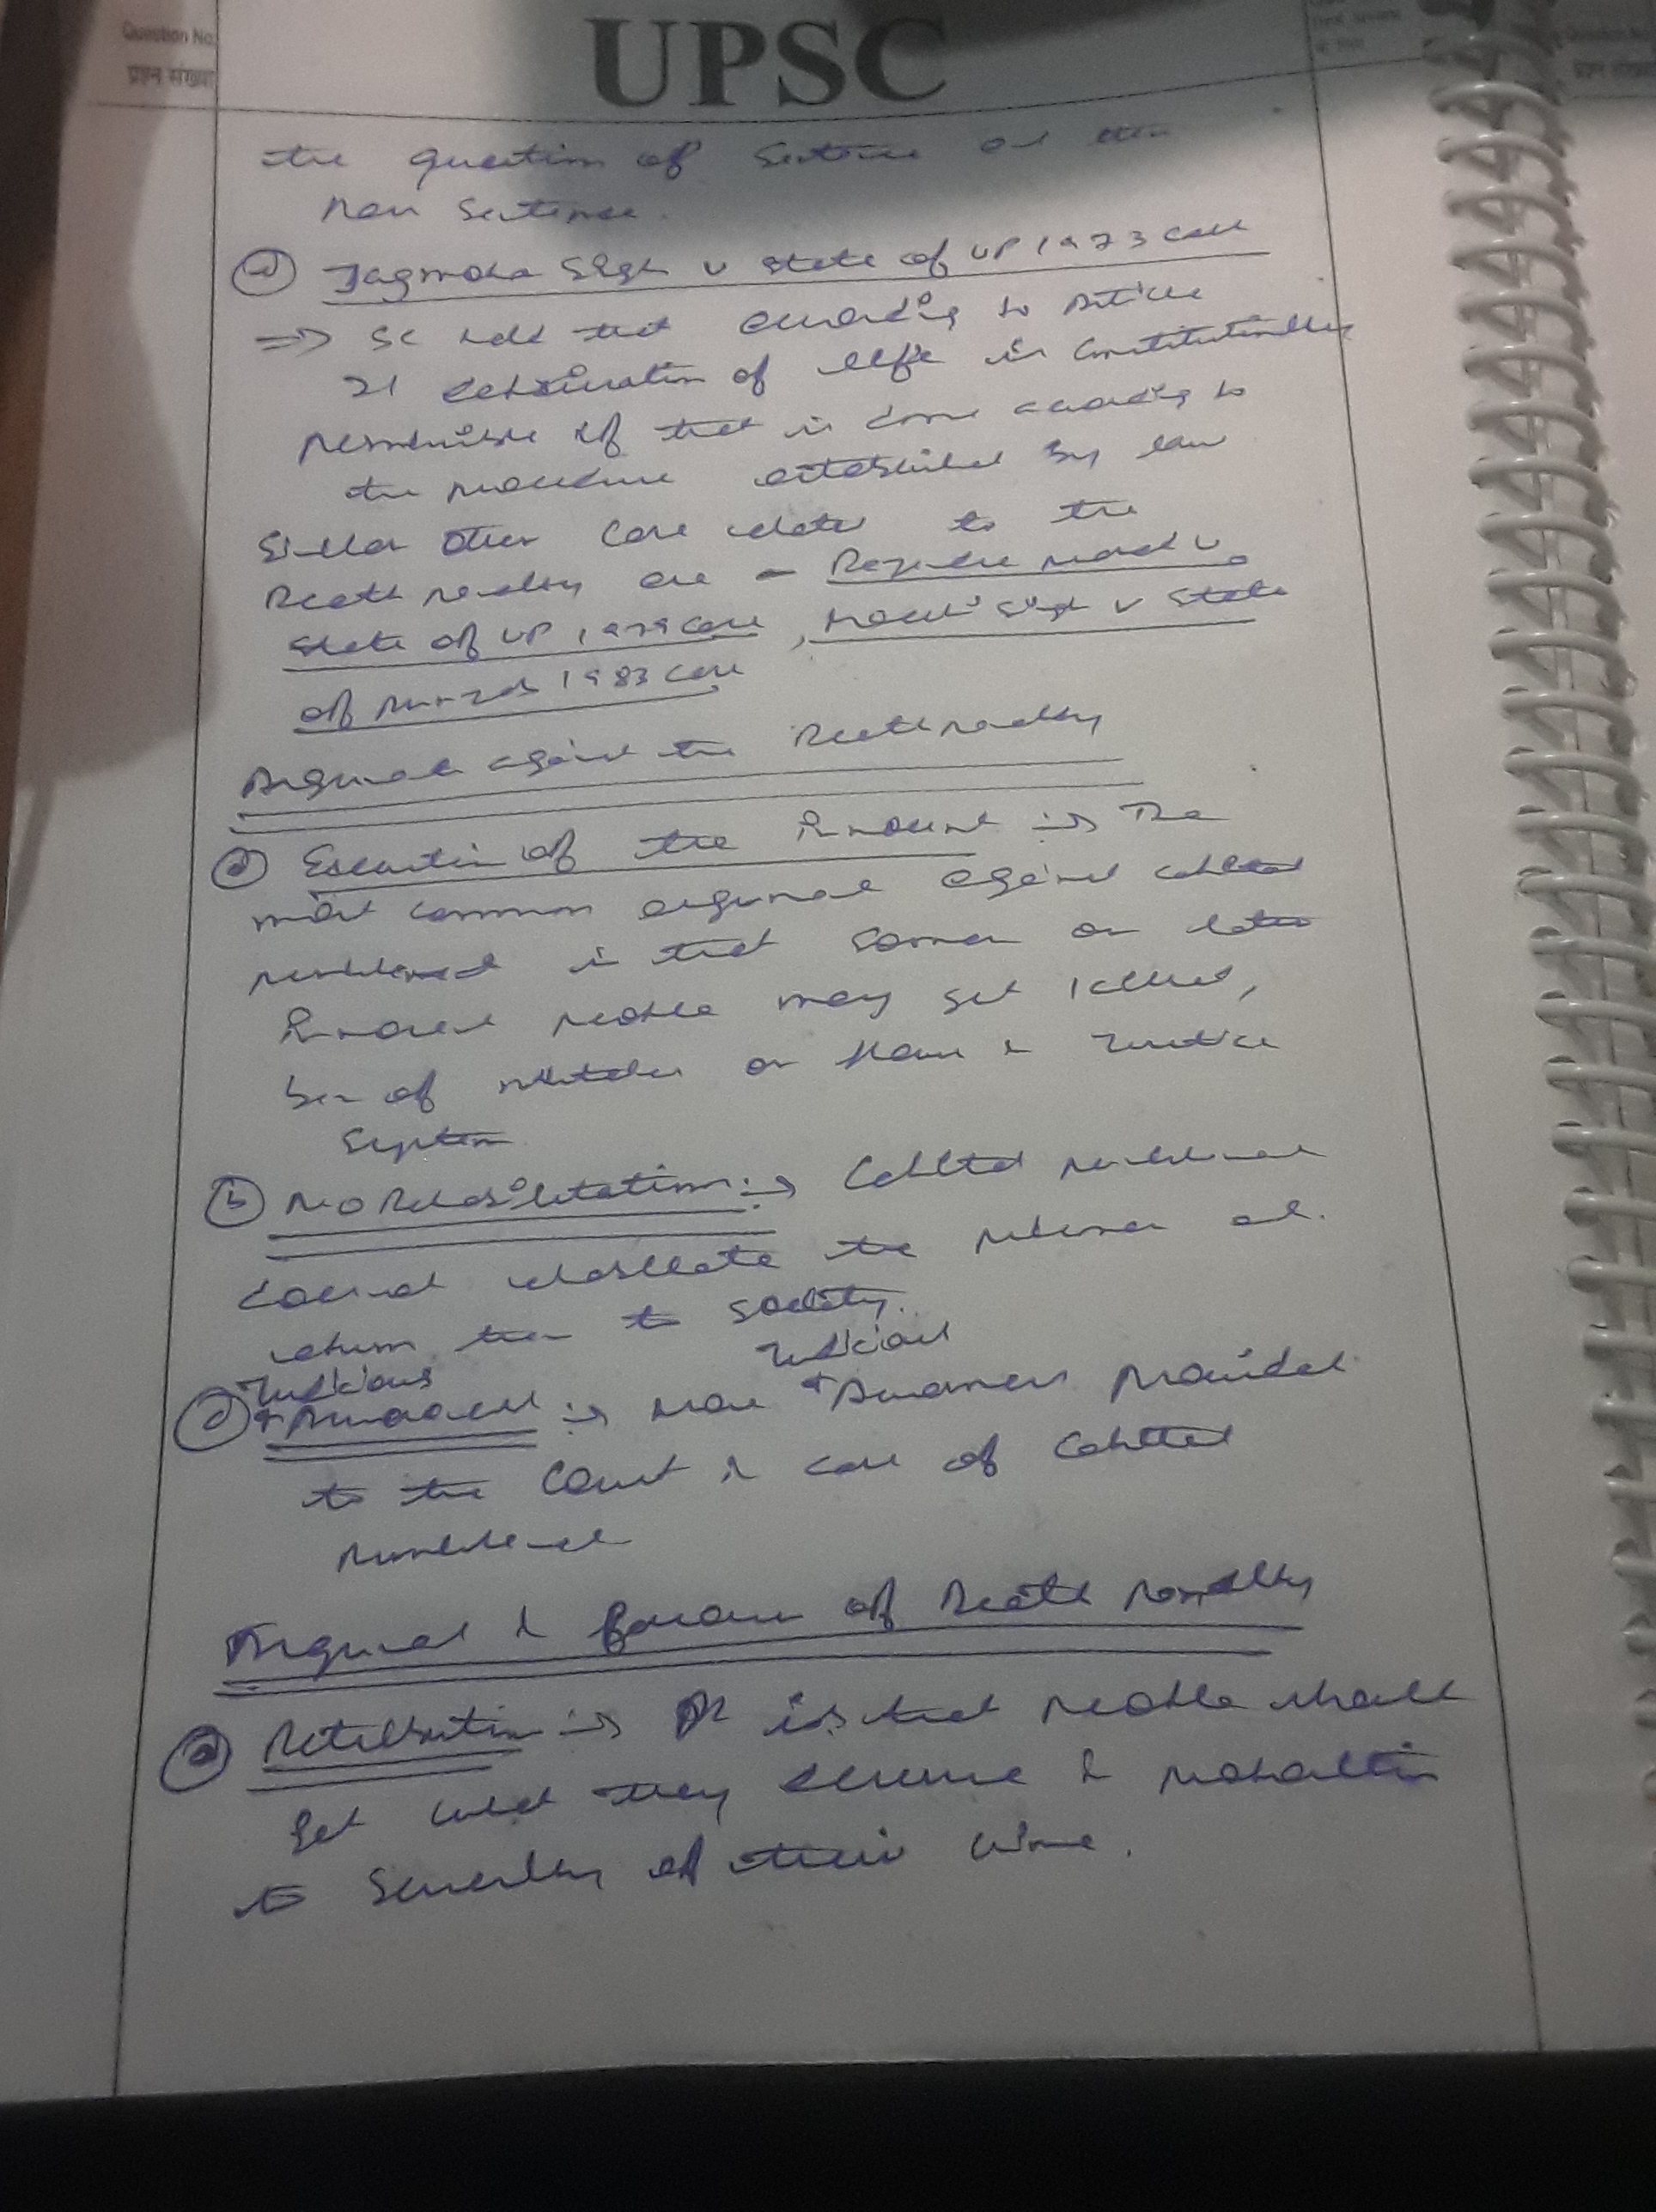 Question No.
प्रश्न संख्या
UPSC
the question of sentence and then
Non sentence.
(d) Jagmohan Singh v State of UP 1973 case
=> SC held that according to Article
21 deprivation of life is constitutionally
permissible if that is done according to
the procedure established by law
Similar other case related to the
Death penalty are - Rajendra Prasad v.
State of UP 1979 case, Machi Singh v State
of Punjab 1983 case
Arguments against the Death penalty
(a) Execution of the Innocent :→ The
most common argument against capital
punishment is that sooner or later
innocent people may get killed,
of mistakes or flaws in Justice
System
(b) No Rehabilitation :→ Capital punishment
doesn't rehabilitate the prisoner and
return them to society.
Judicious Judicious
(c) + :→ More + provided
to the Court in case of Capital
Punishment
Argument in favour of Death penalty
(a) Retribution :→ It is that people should
Get what they deserve in proportion
to severity of their crime.